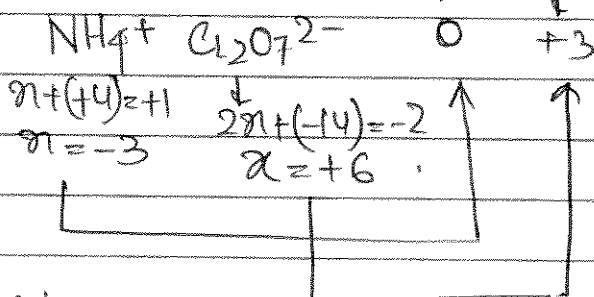 NH4+ Cr2O7 2- 0 +3
x+(+4)=+1 2x+(-14)=-2
x=-3 x=+6